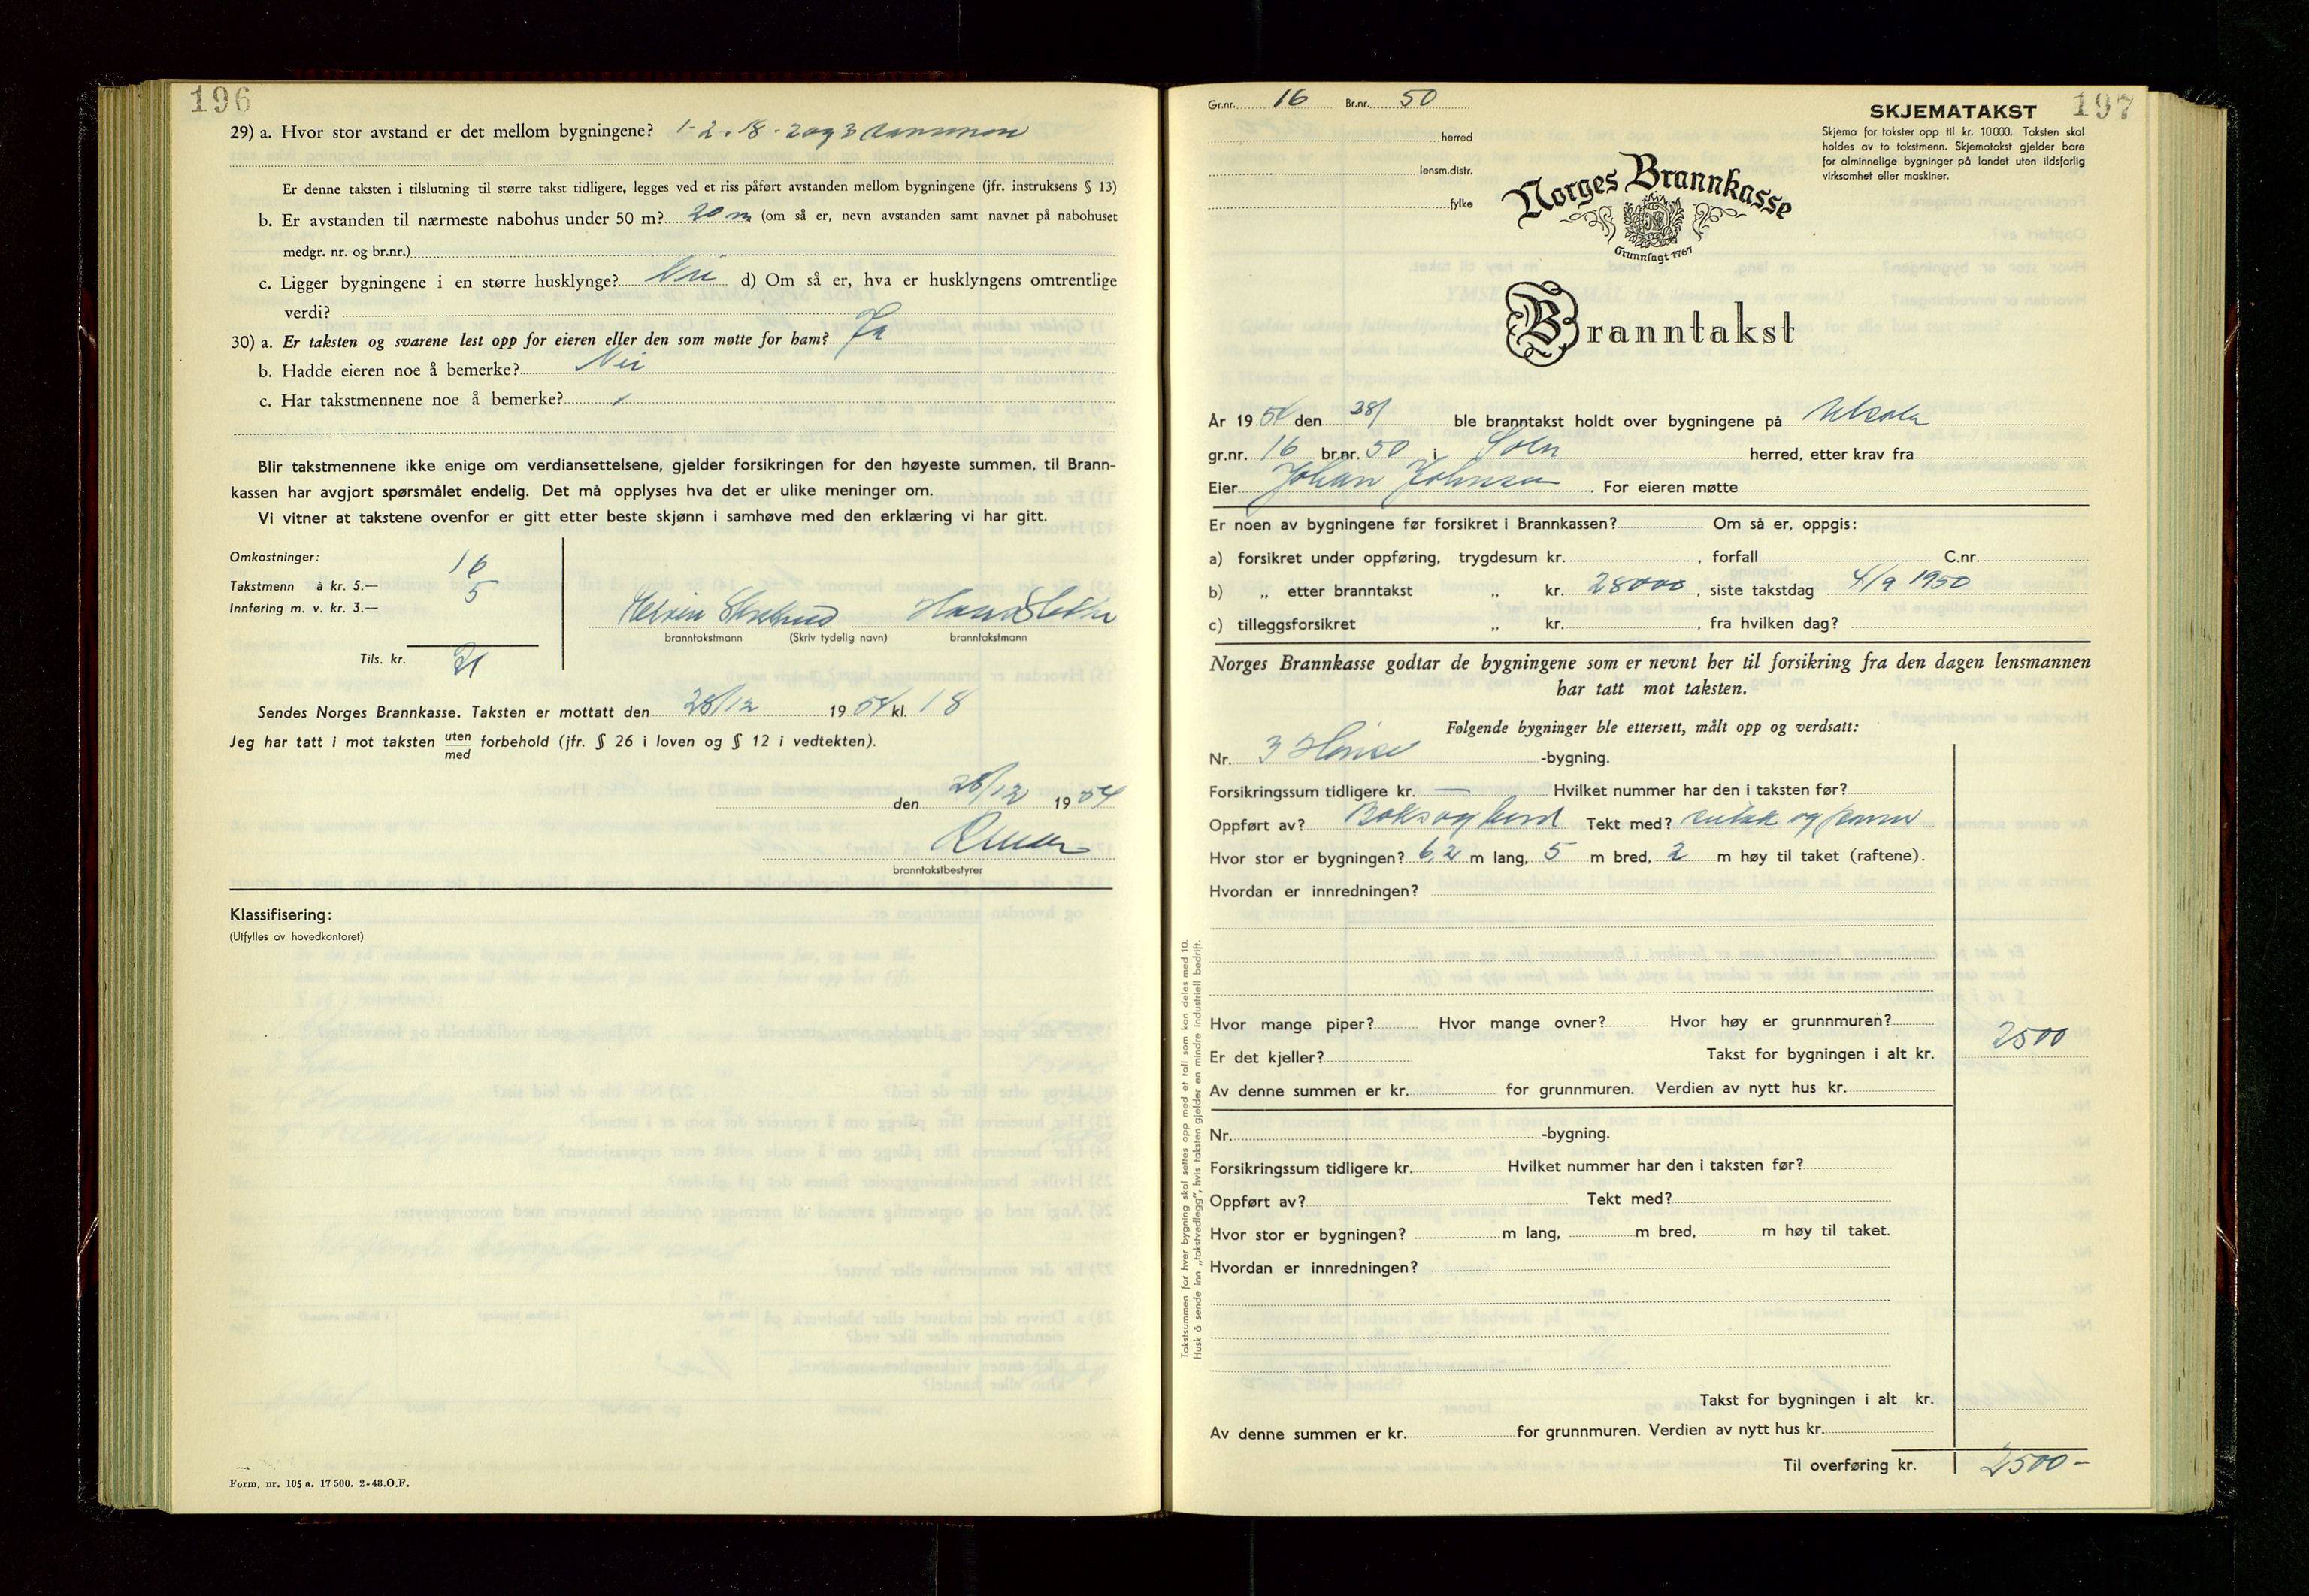 196
29) a. Hvor stor avstand er det mellom bygningene? 1-2. 18 - 2 og 3 sammen
Er denne taksten i tilslutning til større takst tidligere, legges ved et riss påført avstanden mellom bygningene (jfr. instruksens § 13)
b. Er avstanden til nærmeste nabohus under 50 m? 20 m (om så er, nevn avstanden samt navnet på nabohuset
medgr. nr. og br.nr.)
c. Ligger bygningene i en større husklynge? Nei d) Om så er, hva er husklyngens omtrentlige
verdi?
30) a. Er taksten og svarene lest opp for eieren eller den som møtte for ham? Ja
b. Hadde eieren noe å bemerke? Nei
c. Har takstmennene noe å bemerke?
Blir takstmennene ikke enige om verdiansettelsene, gjelder forsikringen for den høyeste summen, til Brann-
kassen har avgjort spørsmålet endelig. Det må opplyses hva det er ulike meninger om.
Vi vitner at takstene ovenfor er gitt etter beste skjønn i samhøve med den erklæring vi har gitt.
Omkostninger:
Takstmenn à kr. 5.— 16
Innføring m. v. kr. 3.— 5
branntakstmann (Skriv tydelig navn) branntakstmann
Tils. kr. 21
Sendes Norges Brannkasse. Taksten er mottatt den 28/12 1954 kl. 18
Jeg har tatt i mot taksten uten/med forbehold (jfr. § 26 i loven og § 12 i vedtekten).
den 28/12 1954
branntakstbestyrer
Klassifisering:
(Utfylles av hovedkontoret)
Form. nr. 105 a. 17 500. 2-48. O.F.
197
Gr.nr. 16 Br.nr. 50
herred
lensm.distr.
fylke
SKJEMATAKST
Skjema for takster opp til kr. 10000. Taksten skal
holdes av to takstmenn. Skjematakst gjelder bare
for alminnelige bygninger på landet uten ildsfarlig
virksomhet eller maskiner.
Norges Brannkasse
Grunnlagt 1767
Branntakst
År 1954 den 28/ ble branntakst holdt over bygningene på
gr.nr. 16 br.nr. 50 i Sola herred, etter krav fra
Eier Johan Johnsen. For eieren møtte
Er noen av bygningene før forsikret i Brannkassen? Om så er, oppgis:
a) forsikret under oppføring, trygdesum kr. , forfall C.nr.
b) „ etter branntakst „ kr. 28000, siste takstdag 4/9 1950
c) tilleggsforsikret „ kr. , fra hvilken dag?
Norges Brannkasse godtar de bygningene som er nevnt her til forsikring fra den dagen lensmannen
har tatt mot taksten.
Følgende bygninger ble ettersett, målt opp og verdsatt:
Nr. 3 Hønse -bygning.
Forsikringssum tidligere kr. — Hvilket nummer har den i taksten før?
Oppført av? Tekt med?
Hvor stor er bygningen? 6,2 m lang, 5 m bred, 2 m høy til taket (raftene).
Hvordan er innredningen?
Hvor mange piper? Hvor mange ovner? Hvor høy er grunnmuren?
Er det kjeller? Takst for bygningen i alt kr. 2500
Av denne summen er kr. for grunnmuren. Verdien av nytt hus kr.
Nr. -bygning.
Forsikringssum tidligere kr. Hvilket nummer har den i taksten før?
Oppført av? Tekt med?
Hvor stor er bygningen? m lang, m bred, m høy til taket.
Hvordan er innredningen?
Takst for bygningen i alt kr.
Av denne summen er kr. for grunnmuren. Verdien av nytt hus kr.
Til overføring kr. 2500 -
Takstsummen for hver bygning skal settes opp med et tall som kan deles med 10.
Husk å sende inn „takstvedlegg", hvis taksten gjelder en mindre industriell bedrift.